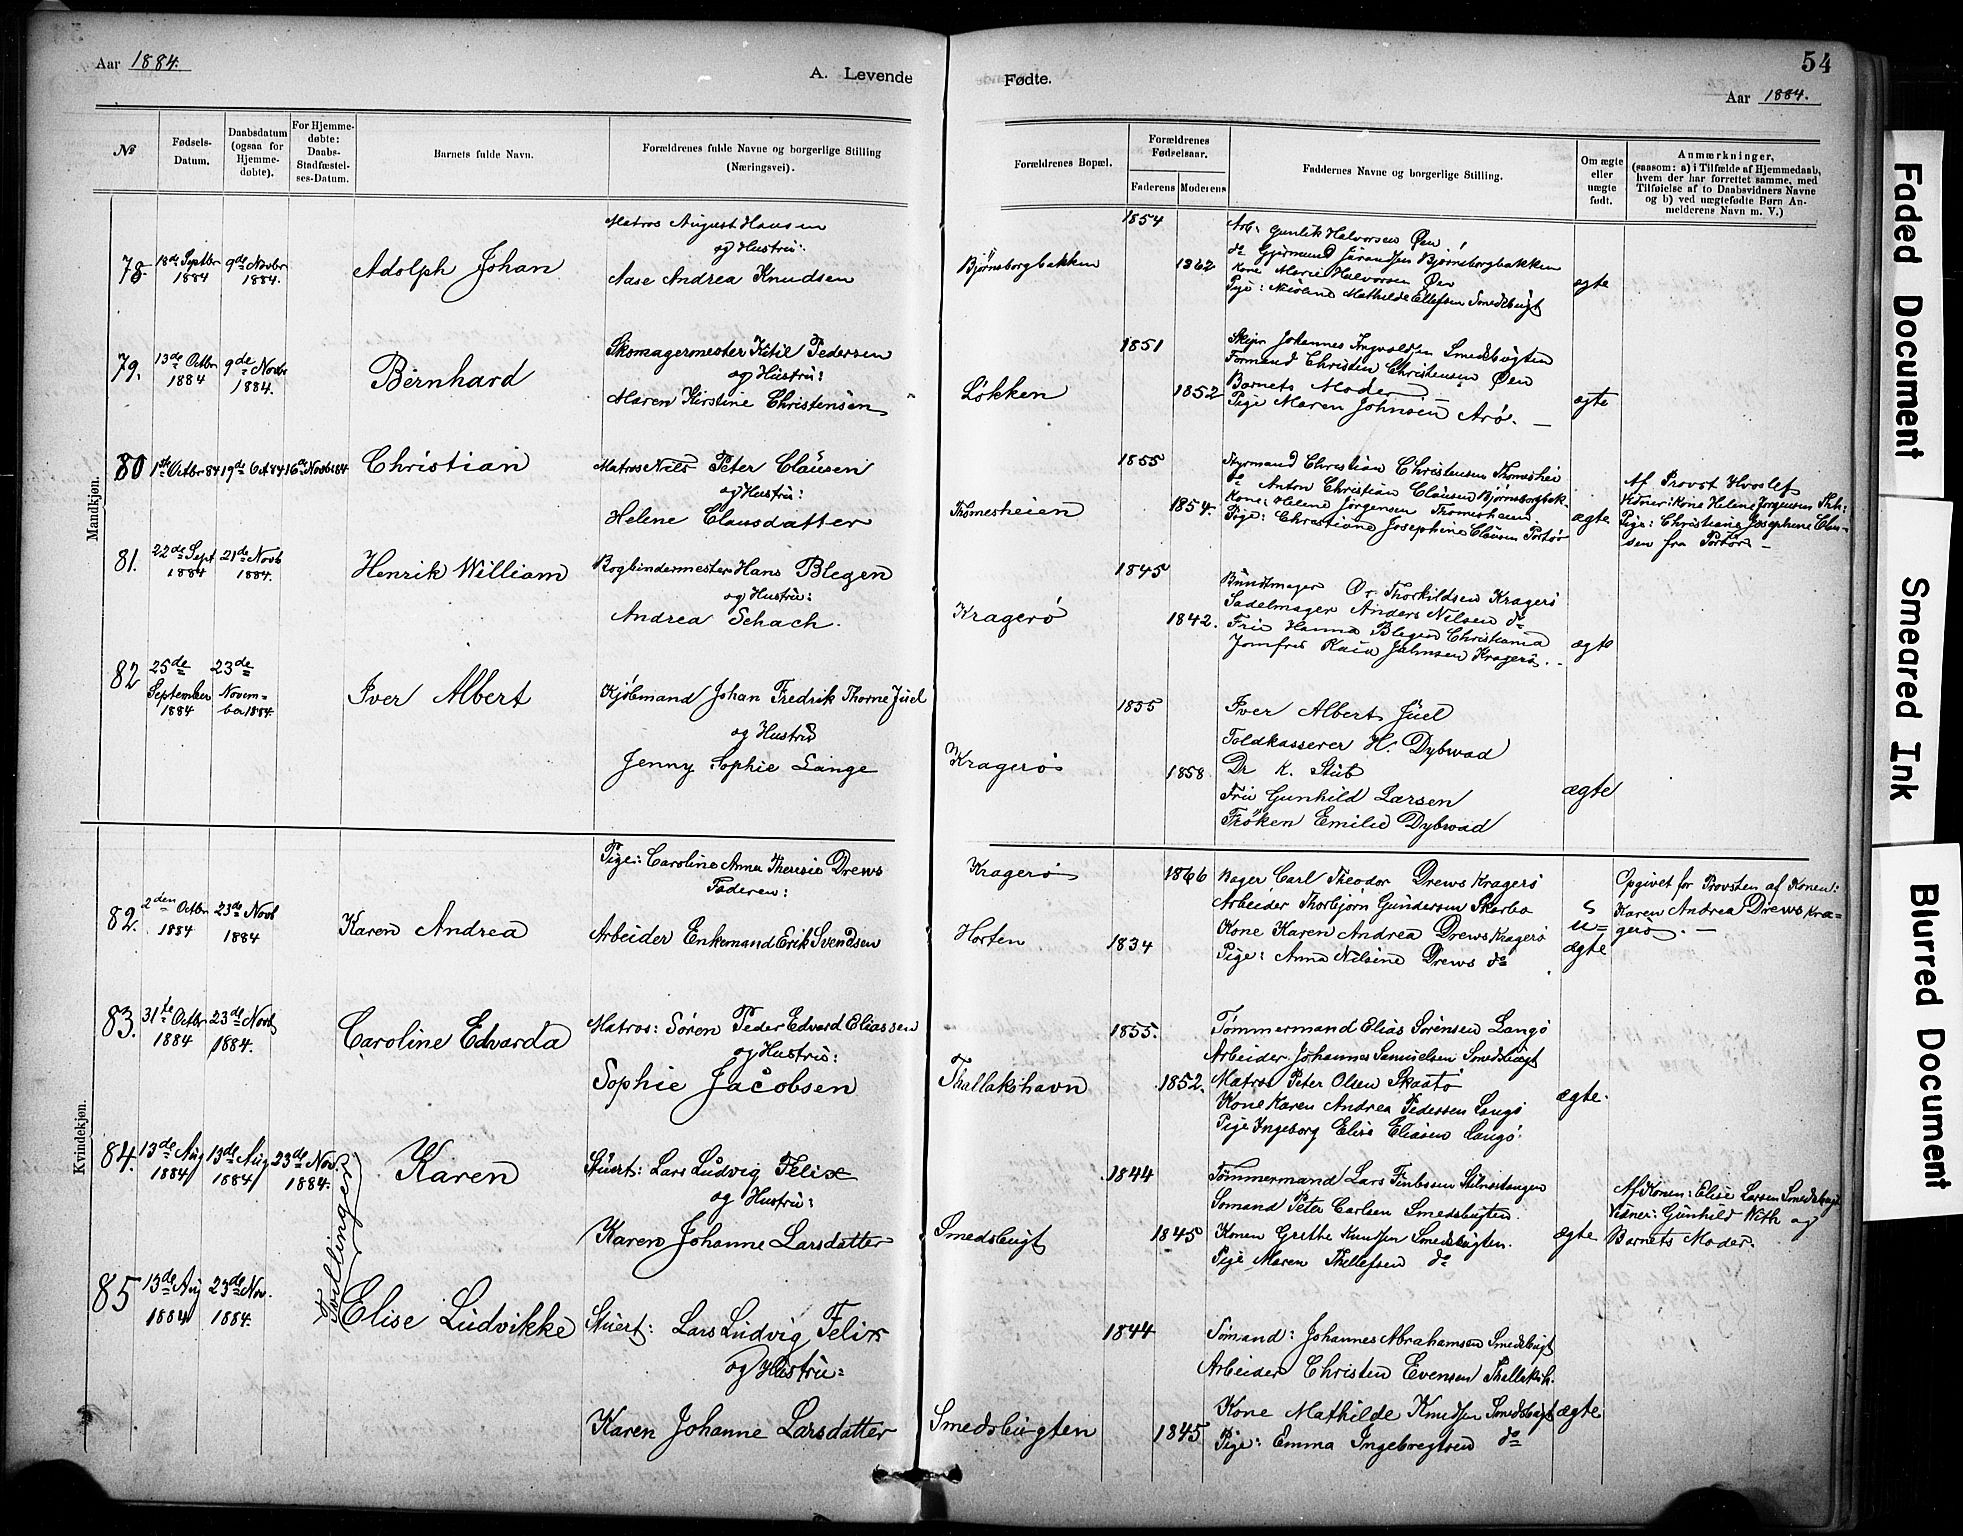 Aar 1884.
A. Levende
Fødte.
54
Aar 1884.
№
Fødsels-Datum.
Daabsdatum (ogsaa for Hjemme-døbte).
For Hjemme-døbte: Daabs-Stadfæstel-ses-Datum.
Barnets fulde Navn.
Forældrenes fulde Navne og borgerlige Stilling (Næringsvei).
Forældrenes Bopæl.
Forældrenes Fødselsaar.
Faderens
Moderens
Faddernes Navne og borgerlige Stilling.
Om ægte eller uægte født.
Anmærkninger,
(saasom: a) i Tilfælde af Hjemmedaab,
hvem der har forrettet samme, med
Tilføielse af to Daabsvidners Navne
og b) ved uægtefødte Børn An-
melderens Navn m. V.)
Mandkjøn.
78.
18de Septbr 1884
9de Novbr 1884.
Adolph Johan
Matros August Hansen
og Hustru:
Aase Andrea Knudsen
Bjørnsborgbakken
1854
1862
Arb: Gunlik Halvorsen Øen
do Gjermund Bjørnsborgbakken
Kone Marie Halvorsen Øen
Pige: Mathilde Ellefsen Smedsbugt
ægte
79.
13de Octbr 1884
9de Novbr 1884.
Bernhard
Skomagermester Ketil Pedersen
og Hustru:
Maren Kirstine Christensen
Løkken
1851
1852
Johannes Ingvoldsen Smedsbugten
Formand Christen Christensen Øen
Barnets Moder
Pige Maren Johnsen Arø.
ægte
80
1ste Octbr 84
19de Oct 84
16de Novbr 84
Christian
Matros Nils Peter Clausen
og Hustru:
Helene Clausdatter
Thomesheien
1855
1854.
Styrmand Christian Christensen Thomeshei
do Anton Christian Clausen Bjørnsborgbak.
Kone: Helene Jørgensen Thomesheien.
Pige: Christiane Josephine Clausen Portør
ægte
Af Provst Hvoslef
Vidner: Kone Helene Jørgensen Thh:
Pige: Christiane Josephine Clau-
sen fra Portør
81.
22de Sept 1884
21de Novb 1884.
Henrik William
Bogbindermester Hans Blegen
og Hustru:
Andrea Schach.
Kragerø
1845
1842.
Bundtmager O. Thorkildsen Kragerø
Sadelmager Anders Nilsen do
Fru Hanna Blegen Christiania
Jomfru Kaia Kragerø.
ægte
82
25de September 1884
23de Novem-ber 1884.
Iver Albert
Kjøbmand Johan Fredrik Thorne Juel
og Hustru
Jenny Sophie Lange
Kragerø
1855
1858
Iver Albert Juel
Toldkasserer H. Dybwad
Dr K. Stub
Fru Gunhild Larsen
Frøken Emilie Dybwad
ægte
Kvindekjøn.
82.
2den Octbr 1884
23de Novb 1884
Karen Andrea
Pige: Caroline Anna Theresie Drews
Faderen:
Arbeider Enkemand Erik Svendsen
Kragerø
Horten
1866
1834
Bager Carl Theodor Drews Kragerø
Arbeider Thorbjørn Gundersen Skarbo
Kone Karen Andrea Drews Kragerø
Pige: Anna Nilsine Drews do
u-
ægte
Opgivet for Provsten af Konen:
Karen Andrea Drews Kra-
gerø. —
83.
31te Octbr 1884
23de Novb 1884.
Caroline Edvarda
Matros: Søren Peder Edvard Eliassen
og Hustru:
Sophie Jacobsen
Thallakshavn
1855.
1852.
Tømmermand Elias Sørensen Langø
Arbeider. Johannes Samuelsen Smedsbugt
Matros Peter Olsen Skaatø
Kone Karen Andrea Pedersen Langø
Pige Ingeborg Elise Eliasen Langø.
ægte.
84.
13de Aug 1884
13de Aug 1884
23de Nov. 1884.
Tvillinger
Karen
Stuert: Lars Ludvig Felix
og Hustru:
Karen Johanne Larsdatter
Smedsbugt
1844
1845
Tømmermand Lars
Sømand Peter Carlsen Smedsbugten.
Konen Grethe Knutsen Smedsbugten.
Pige Maren Thellefsen do
ægte
Af Konen: Elise Larsen Smedsbugt
Vidner: Gunhild With og
Barnets Moder.
85
13de Aug 1884
23de Nov. 1884.
Elise Ludvikke
Stuert: Lars Ludvig Felix
og Hustru:
Karen Johanne Larsdatter
Smedsbugten
1844
1845
Sømand: Johannes Abrahamsen Smedsbugt
Arbeider Christen Evensen Thallaksh.
Kone Mathilde Knudsen Smedsbugt
Pige: Emma Ingebregtsen do
ægte
Faded Document
Smeared Ink
Blurred Document